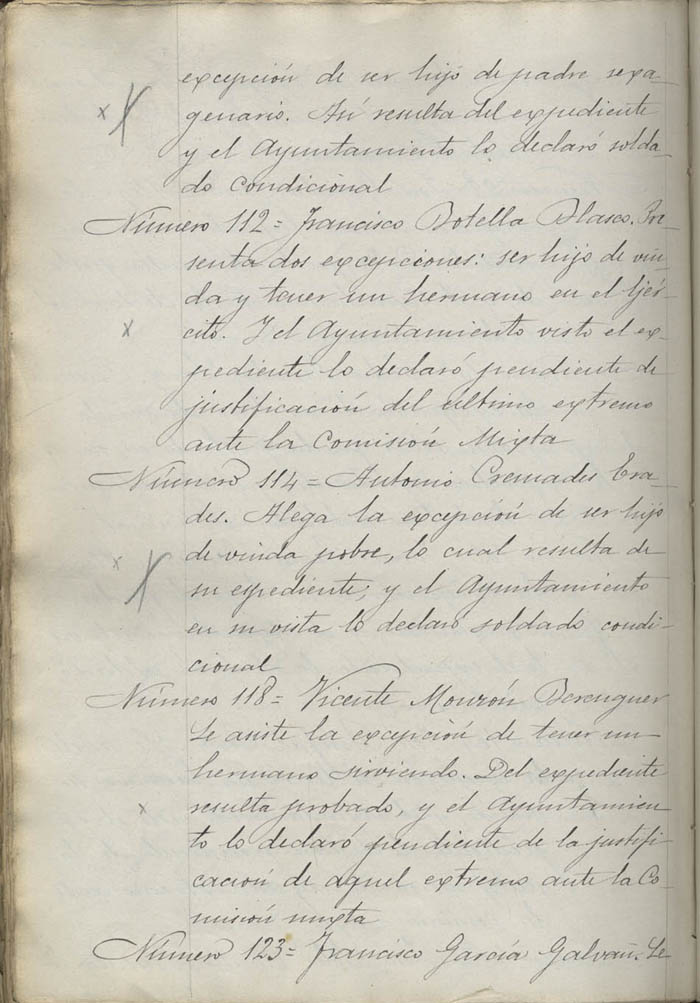 excepción de ser hijo de padre sexa-
genario. Así resulta del expediente
y el Ayuntamiento lo declaró solda-
do condicional
Número 112= Francisco Botella Blasco. Pre-
senta dos excepciones: ser hijo de viu-
da y tener un hermano en el Ejér-
cito. Y el Ayuntamiento visto el ex-
pediente lo declaró pendiente de
justificación del último extremo
ante la Comisión Mixta
Número 114= Antonio Cremades Era-
des. Alega la excepción de ser hijo
de viuda pobre, lo cual resulta de
su espediente; y el Ayuntamiento
en su vista lo declaró soldado condi-
cional
Número 118= Vicente Monzón Berenguer
Le asiste la excepción de tener un
hermano sirviendo. Del expediente
resulta probado, y el Ayuntamien-
to lo declaró pendiente de la justifi-
cación de aquel extremo ante la Co-
misión mixta
Número 123= Francisco García Galvañ. Le